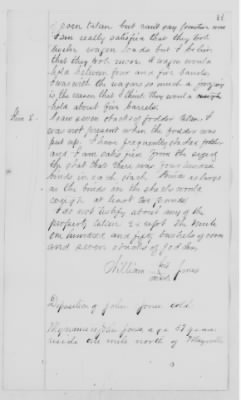 I seen taken but cant say
I am really satisfied that they took
twelve wagon loads but I believe
that they took more. A wagon would
hold between four and five barrels
I was with the wagons so much a foraging
is the reason that I think they would
hold about five barrels.
I saw seven stacks of fodder taken. I
was not present when the fodder was
put up. I have frequently stacked fodder
and I am satisfied from the size of
the stack that there was four hundred
binds in each stack
as the binds in the stacks would
weigh at least two pounds
I do not testify about any of the
property taken except the mule
one hundred and fifty bushels of corn
and seven stacks of fodder
his
William Jones
mark
Deposition of John Jones cold.
My name is John Jones, age 57 years
reside one mile north of Maysville